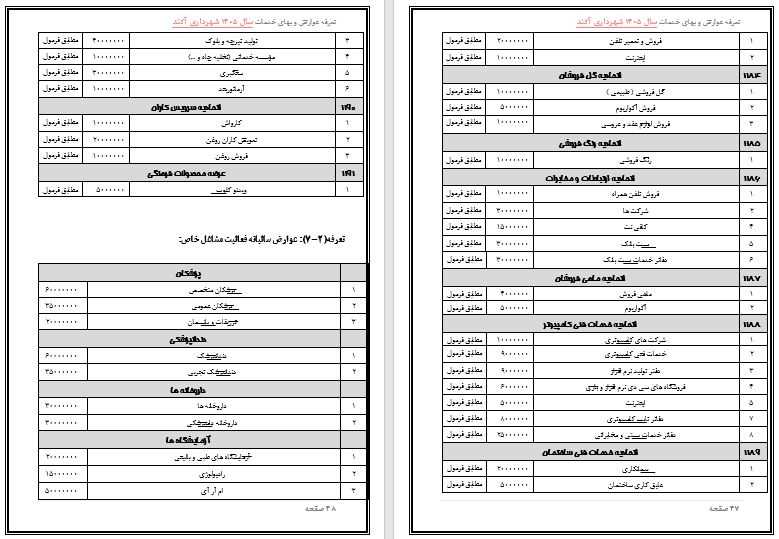 تعرفه عوارض و بهای خدمات سال ۱۴۰۵ شهرداری آکند
۱ فروش و تعمیر تلفن ۲۰۰۰۰۰۰۰ مطابق فرمول
۲ اینترنت ۱۰۰۰۰۰۰۰ مطابق فرمول
۱۱۸۴ اتحادیه گل فروشان
۱ گل فروشی ( طبیعی ) ۱۰۰۰۰۰۰۰ مطابق فرمول
۲ فروش آکواریوم ۵۰۰۰۰۰۰ مطابق فرمول
۳ فروش لوازم عقد و عروسی ۱۰۰۰۰۰۰۰ مطابق فرمول
۱۱۸۵ اتحادیه رنگ فروشی
۱ رنگ فروشی ۱۰۰۰۰۰۰۰ مطابق فرمول
۱۱۸۶ اتحادیه ارتباطات و مخابرات
۱ فروش تلفن همراه ۱۰۰۰۰۰۰۰ مطابق فرمول
۲ شرکت ها ۳۰۰۰۰۰۰۰ مطابق فرمول
۴ کافی نت ۱۵۰۰۰۰۰۰ مطابق فرمول
۵ پست بانک ۳۰۰۰۰۰۰۰ مطابق فرمول
۶ دفاتر خدمات پست بانک ۳۰۰۰۰۰۰۰ مطابق فرمول
۱۱۸۷ اتحادیه ماهی فروشان
۱ ماهی فروش ۴۰۰۰۰۰۰ مطابق فرمول
۲ آکواریوم ۵۰۰۰۰۰۰ مطابق فرمول
۱۱۸۸ اتحادیه خدمات فنی کامپیوتر
۱ شرکت های کامپیوتری ۱۰۰۰۰۰۰۰ مطابق فرمول
۲ خدمات فنی کامپیوتری ۹۰۰۰۰۰۰ مطابق فرمول
۳ دفتر تولید نرم افزار ۹۰۰۰۰۰۰ مطابق فرمول
۴ فروشگاه های سی دی نرم افزار و بازی ۶۰۰۰۰۰۰ مطابق فرمول
۵ اینترنت ۵۰۰۰۰۰۰ مطابق فرمول
۷ دفاتر تایپ کامپیوتری ۸۰۰۰۰۰۰ مطابق فرمول
۸ دفاتر خدمات پستی و مخابراتی ۲۵۰۰۰۰۰۰ مطابق فرمول
۱۱۸۹ اتحادیه خدمات فنی ساختمان
۱ پیمانکاری ۲۰۰۰۰۰۰۰ مطابق فرمول
۲ عایق کاری ساختمان ۵۰۰۰۰۰۰ مطابق فرمول
۴۷ صفحه
تعرفه عوارض و بهای خدمات سال ۱۴۰۵ شهرداری آکند
۳ تولید تیرچه و بلوک ۴۰۰۰۰۰۰۰ مطابق فرمول
۴ مؤسسه خدماتی (تخلیه چاه و ...) ۱۰۰۰۰۰۰۰ مطابق فرمول
۵ سفتگیری ۳۰۰۰۰۰۰۰ مطابق فرمول
۶ آرماتوربند ۱۰۰۰۰۰۰۰ مطابق فرمول
۱۱۹۰ اتحادیه سرویس کاران
۱ کارواش ۱۰۰۰۰۰۰۰ مطابق فرمول
۲ تعویض کاران روغن ۲۰۰۰۰۰۰۰ مطابق فرمول
۳ فروش روغن ۱۰۰۰۰۰۰۰ مطابق فرمول
۱۱۹۱ عرضه محصولات فرهنگی
۱ ویدئو کلوپ ۵۰۰۰۰۰۰ مطابق فرمول
تعرفه(۲–۷): عوارض سالیانه فعالیت مشاغل خاص:
پزشکان
۱ پزشکان متخصص ۶۰۰۰۰۰۰۰
۲ پزشکان عمومی ۳۵۰۰۰۰۰۰
۳ تزریقات و پانسمان ۲۰۰۰۰۰۰۰
دندانپزشکی
۱ دندانپزشک ۶۰۰۰۰۰۰۰
۲ دندانپزشک تجربی ۳۵۰۰۰۰۰۰
داروخانه ها
۱ داروخانه ها ۳۰۰۰۰۰۰۰
۲ داروخانه دامپزشکی ۳۰۰۰۰۰۰۰
آزمایشگاه ها
۱ آزمایشگاه های طبی و بالینی ۲۰۰۰۰۰۰۰
۲ رادیولوژی ۱۵۰۰۰۰۰۰
۳ ام آر آی ۵۰۰۰۰۰۰۰
۴۸ صفحه